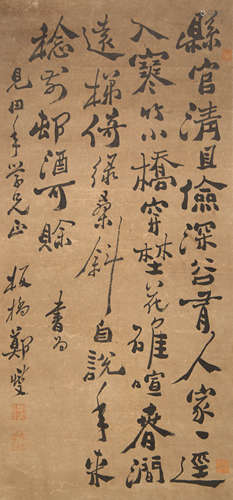 縣官清且儉深谷有人家一逕
入寒竹小橋穿埜花碓喧春澗
遠梯倚綠桑斜自說年來
稔前邨酒可賒 書為
見田年學兄正
板橋鄭燮